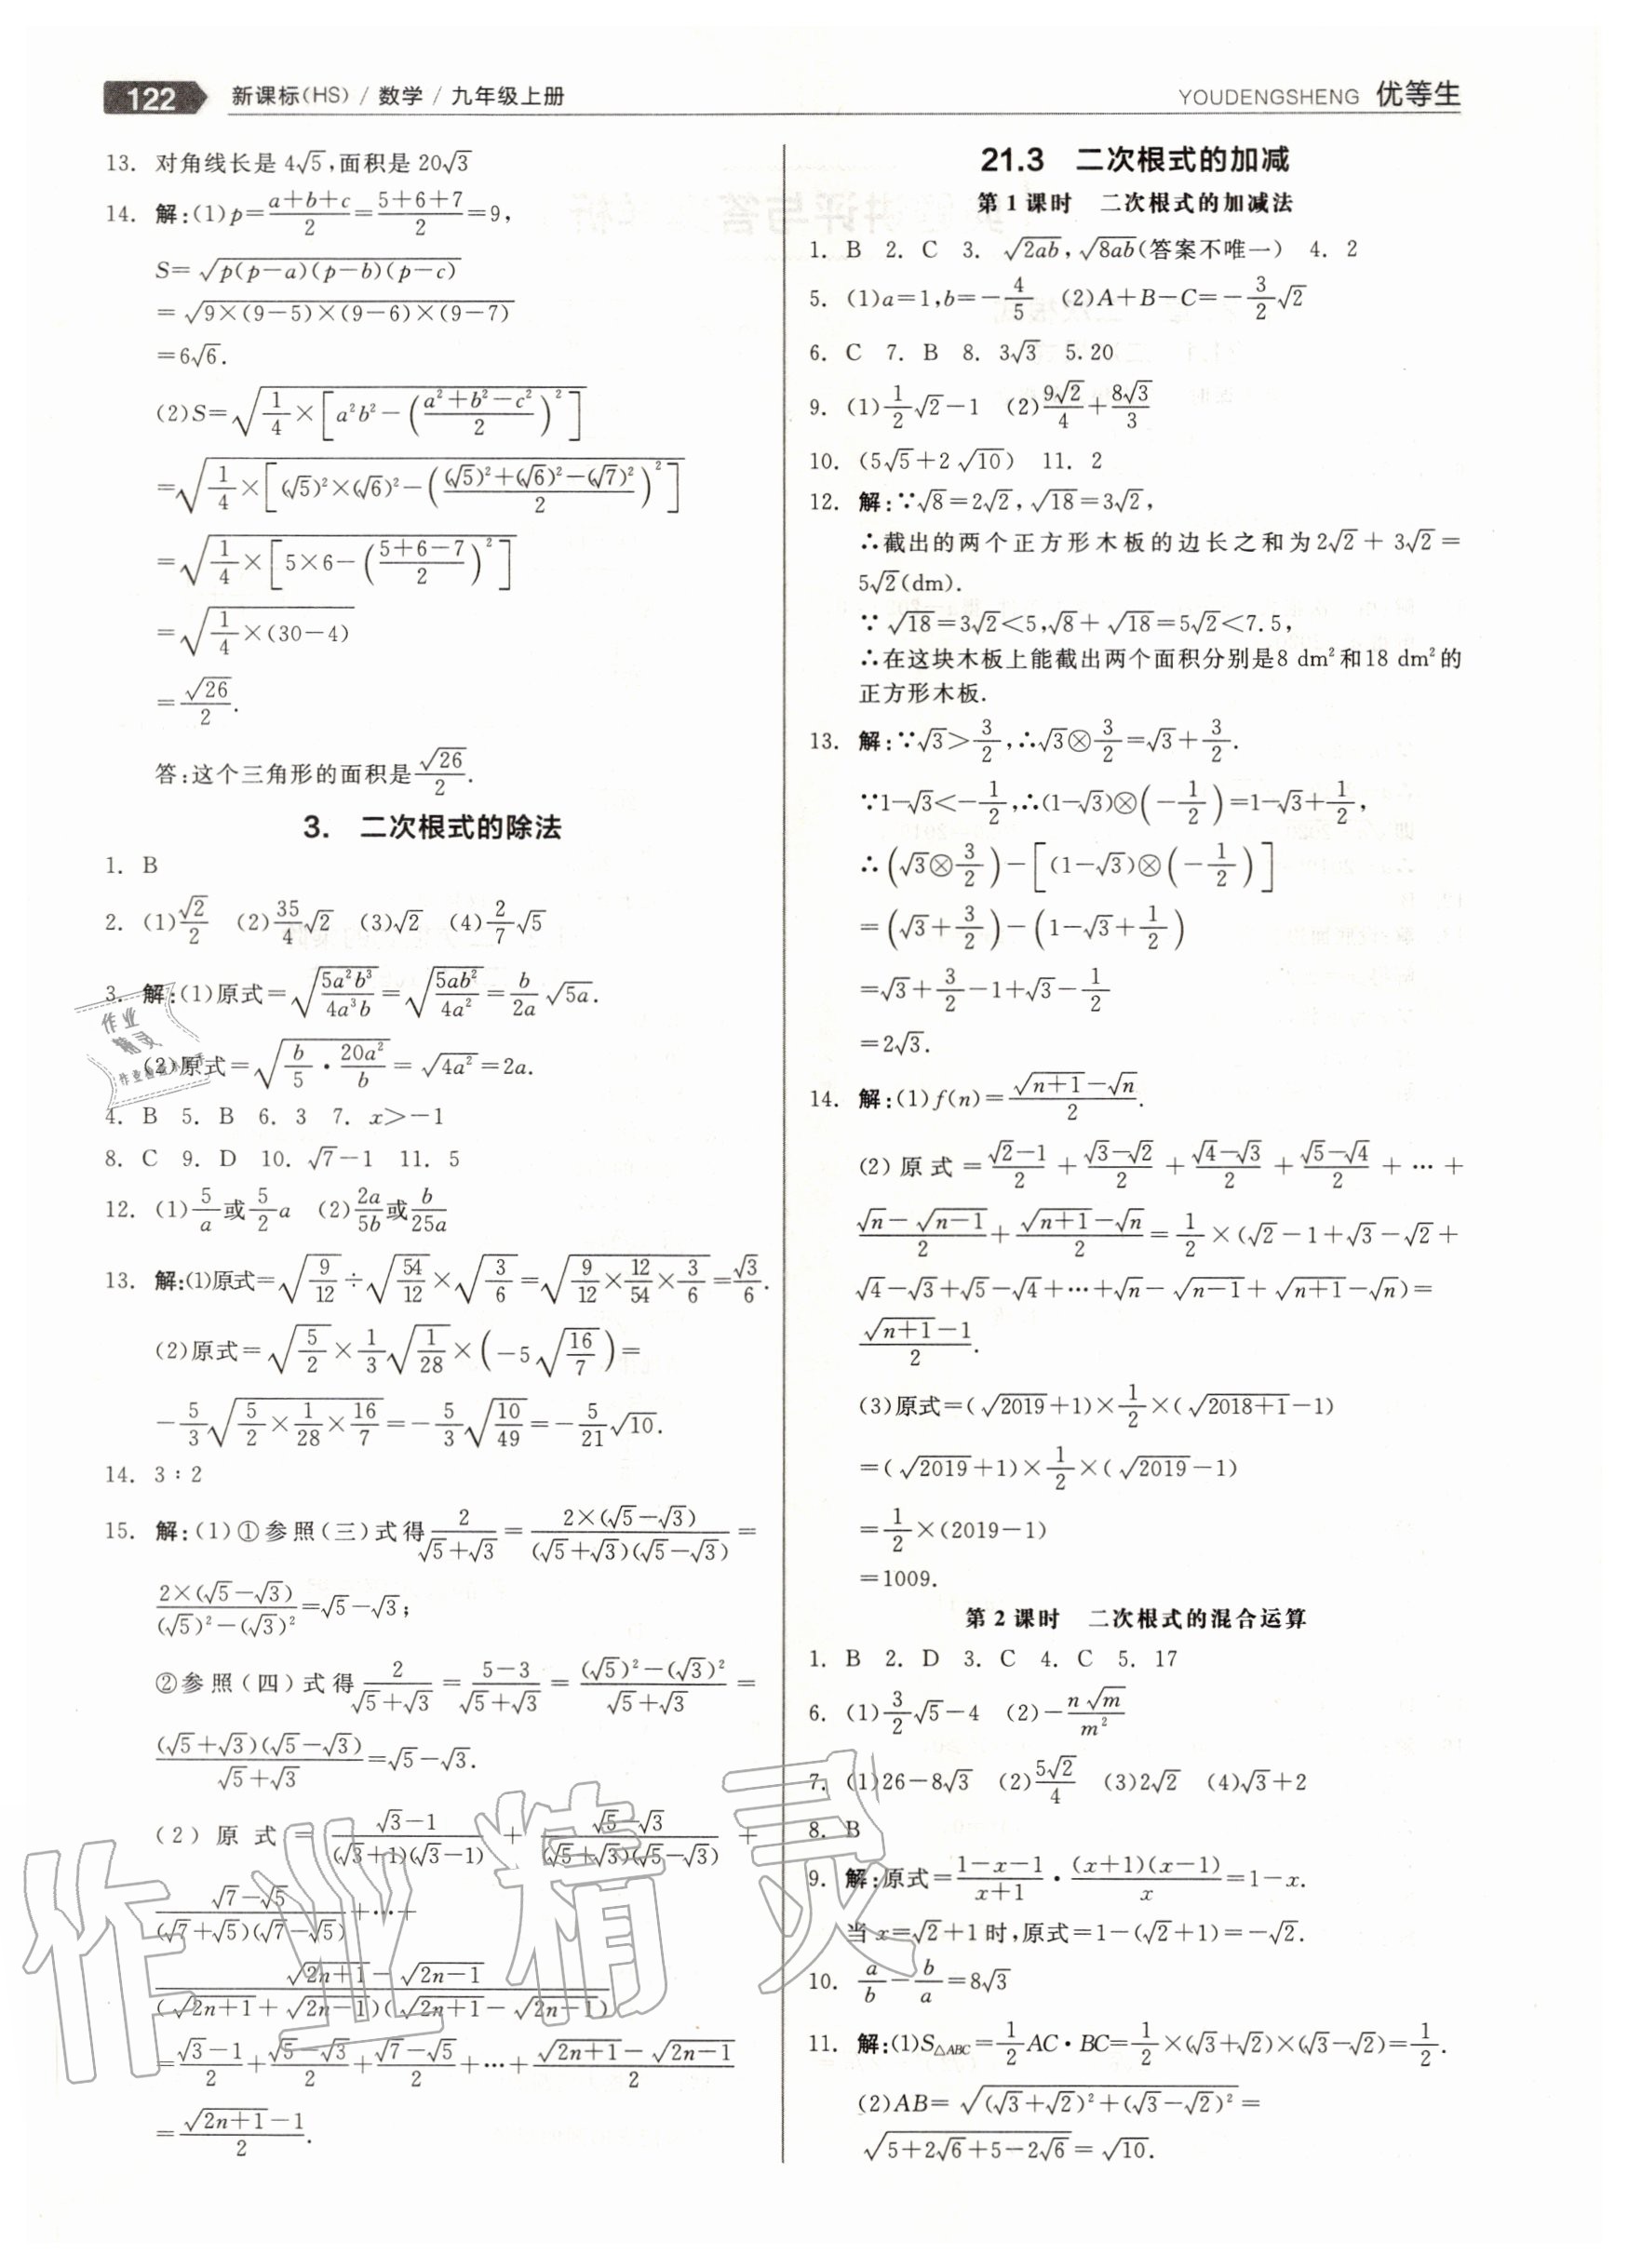 122 新课标(HS) / 数学 / 九年级上册
YOUDENGSHENG 优等生
13. 对角线长是 4√5,面积是 20√3
14. 解:(1)p=(a+b+c)/2=(5+6+7)/2=9,
S=√(p(p-a)(p-b)(p-c))
=√(9×(9-5)×(9-6)×(9-7))
=6√6.
(2)S=√(1/4×[a²b²-((a²+b²-c²)/2)²])
=√(1/4×[(√5)²×(√6)²-(((√5)²+(√6)²-(√7)²)/2)²])
=√(1/4×[5×6-((5+6-7)/2)²])
=√(1/4×(30-4))
=√26/2.
答:这个三角形的面积是√26/2.
3. 二次根式的除法
1. B
2. (1)√2/2 (2)35/4√2 (3)√2 (4)2/7√5
3. 解:(1)原式=√(5a²b³/4a³b)=√(5ab²/4a²)=b/2a √5a.
(2)原式=√(b/5·20a²/b)=√4a²=2a.
4. B 5. B 6. 3 7. x>-1
8. C 9. D 10. √7-1 11. 5
12. (1)5/a或5/2a (2)2a/5b或b/25a
13. 解:(1)原式=√(9/12)÷√(54/12)×√(3/6)=√(9/12×12/54×3/6)=√3/6.
(2)原式=√(5/2)×1/3√(1/28)×(-5√(16/7))=
-5/3√(5/2×1/28×16/7)=-5/3√(10/49)=-5/21√10.
14. 3∶2
15. 解:(1)①参照(三)式得2/(√5+√3)=2×(√5-√3)/((√5+√3)(√5-√3))=
2×(√5-√3)/((√5)²-(√3)²)=√5-√3;
②参照(四)式得2/(√5+√3)=(5-3)/(√5+√3)=((√5)²-(√3)²)/(√5+√3)=
(√5+√3)(√5-√3)/(√5+√3)=√5-√3.
(2)原式=(√3-1)/((√3+1)(√3-1))+(√5-√3)/((√5+√3)(√5-√3))+
(√7-√5)/((√7+√5)(√7-√5))+…+
(√(2n+1)-√(2n-1))/((√(2n+1)+√(2n-1))(√(2n+1)-√(2n-1)))
=(√3-1)/2+(√5-√3)/2+(√7-√5)/2+…+(√(2n+1)-√(2n-1))/2
=(√(2n+1)-1)/2.
21.3 二次根式的加减
第1课时 二次根式的加减法
1. B 2. C 3. √2ab,√8ab(答案不唯一) 4. 2
5. (1)a=1,b=-4/5 (2)A+B-C=-3/2√2
6. C 7. B 8. 3√3 5.20
9. (1)1/2√2-1 (2)9√2/4+8√3/3
10. (5√5+2√10) 11. 2
12. 解:∵√8=2√2,√18=3√2,
∴截出的两个正方形木板的边长之和为2√2+3√2=
5√2(dm).
∵√18=3√2<5,√8+√18=5√2<7.5,
∴在这块木板上能截出两个面积分别是8 dm²和18 dm²的
正方形木板.
13. 解:∵√3>3/2,∴√3⊗3/2=√3+3/2.
∵1-√3<-1/2,∴(1-√3)⊗(-1/2)=1-√3+1/2,
∴(√3⊗3/2)-[(1-√3)⊗(-1/2)]
=(√3+3/2)-(1-√3+1/2)
=√3+3/2-1+√3-1/2
=2√3.
14. 解:(1)f(n)=(√(n+1)-√n)/2.
(2)原式=(√2-1)/2+(√3-√2)/2+(√4-√3)/2+(√5-√4)/2+…+
(√n-√(n-1))/2+(√(n+1)-√n)/2=1/2×(√2-1+√3-√2+
√4-√3+√5-√4+…+√n-√(n-1)+√(n+1)-√n)=
(√(n+1)-1)/2.
(3)原式=(√2019+1)×1/2×(√(2018+1)-1)
=(√2019+1)×1/2×(√2019-1)
=1/2×(2019-1)
=1009.
第2课时 二次根式的混合运算
1. B 2. D 3. C 4. C 5. 17
6. (1)3/2√5-4 (2)-n√m/m²
7. (1)26-8√3 (2)5√2/4 (3)2√2 (4)√3+2
8. B
9. 解:原式=(1-x-1)/(x+1)·(x+1)(x-1)/x=1-x.
当x=√2+1时,原式=1-(√2+1)=-√2.
10. a/b-b/a=8√3
11. 解:(1)S△ABC=1/2AC·BC=1/2×(√3+√2)×(√3-√2)=1/2.
(2)AB=√((√3+√2)²+(√3-√2)²)=
√(5+2√6+5-2√6)=√10.
作业
精灵
作业精灵